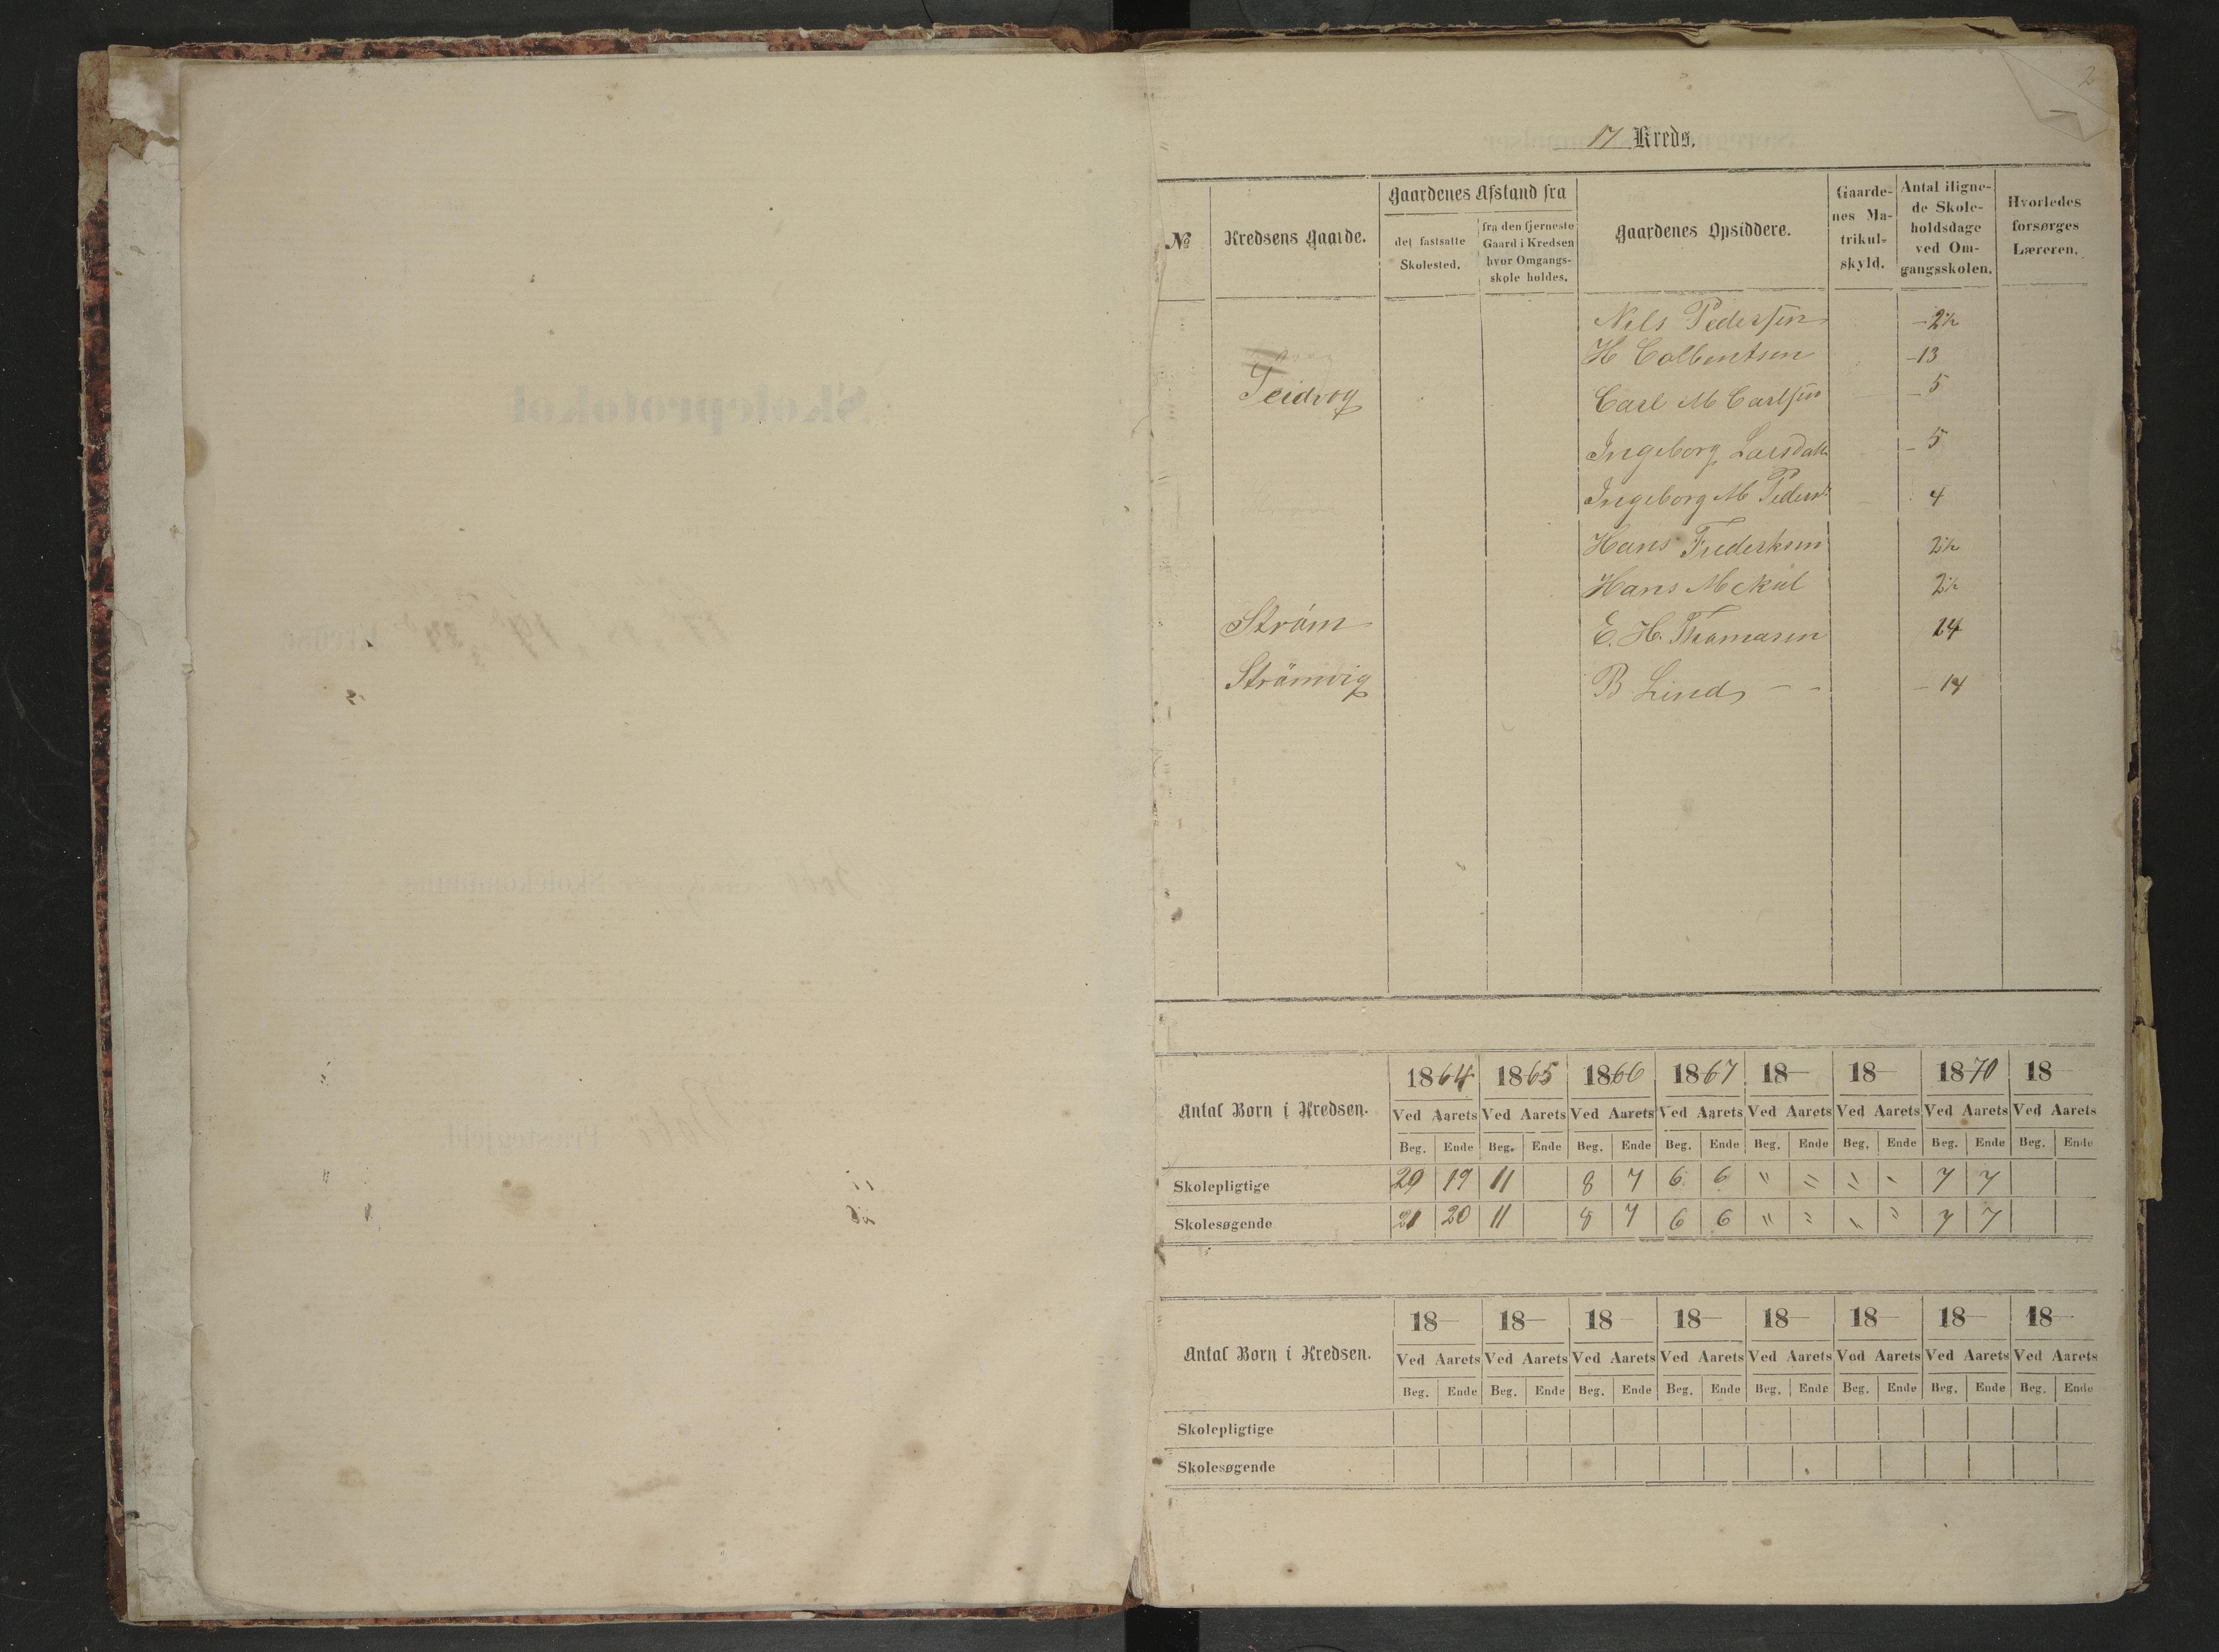 2
17 Kreds.
№ Kredsens Gaarde. Gaardenes Afstand fra det fastsatte Skolested. fra den fjerneste Gaard i Kredsen hvor Omgangsskole holdes. Gaardenes Opsiddere. Gaardenes Matrikulskyld. Antal ilignede Skoleholdsdage ved Omgangsskolen. Hvorledes forsørges Læreren.
Nils Pedersen 2½
H Colbentsen 13
Teidvog Carl M Carlsen 5
Ingeborg Larsdatt. 5
Ingeborg M Pedersd. 4
Hans Frederksen 2½
Hans Mckul 2½
Strøm E. H. Thomasen 14
Strømvig B Lind 14
Antal Born i Kredsen. 1864 1865 1866 1867 18 18 1870 18
Ved Aarets Ved Aarets Ved Aarets Ved Aarets Ved Aarets Ved Aarets Ved Aarets Ved Aarets
Beg. Ende Beg. Ende Beg. Ende Beg. Ende Beg. Ende Beg. Ende Beg. Ende Beg. Ende
Skolepligtige 20 19 11 8 7 6 6 " " " " 7 7
Skolesøgende 21 20 11 8 7 6 6 " " " " 7 7
Antal Born i Kredsen. 18 18 18 18 18 18 18 18
Ved Aarets Ved Aarets Ved Aarets Ved Aarets Ved Aarets Ved Aarets Ved Aarets Ved Aarets
Beg. Ende Beg. Ende Beg. Ende Beg. Ende Beg. Ende Beg. Ende Beg. Ende Beg. Ende
Skolepligtige
Skolesøgende